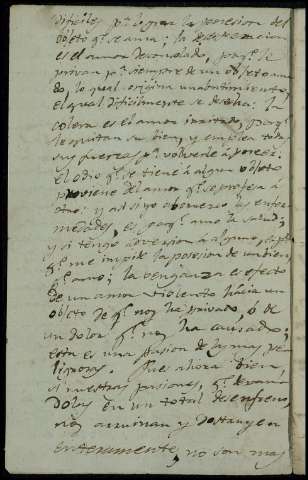 dificiles pª lograr la posesion del
objeto qª se ama; la desesperacion
es el amor desconsolado, porqª se
privan pª siempre de un objeto ama
do, lo qual origina un abatimiento,
el qual dificilmente se desecha: la
colera es el amor irritado, porqª
le quitan su bien, y emplea todas
sus fuerzas pª volverle á poseer:
El odio qª se tiene á algun objeto
proviene del amor qª se profesa á
otro: y asi si yo aborrezco las enfer
medades, es porqª amo la salud;
y si tengo aversion á alguno, es
qª me impide la posesion de un bien,
qª amo; la benganza es efecto
de un amor violento hácia un
objeto de qª nos ha privado, ó de
un dolor qª nos ha causado;
esta es una pasion de las mas pe
ligrosas. Pues ahora bien,
si nuestras pasiones, qª
en un total desenfreno,
nos arruinan y destruyen
enteramente, no son mas